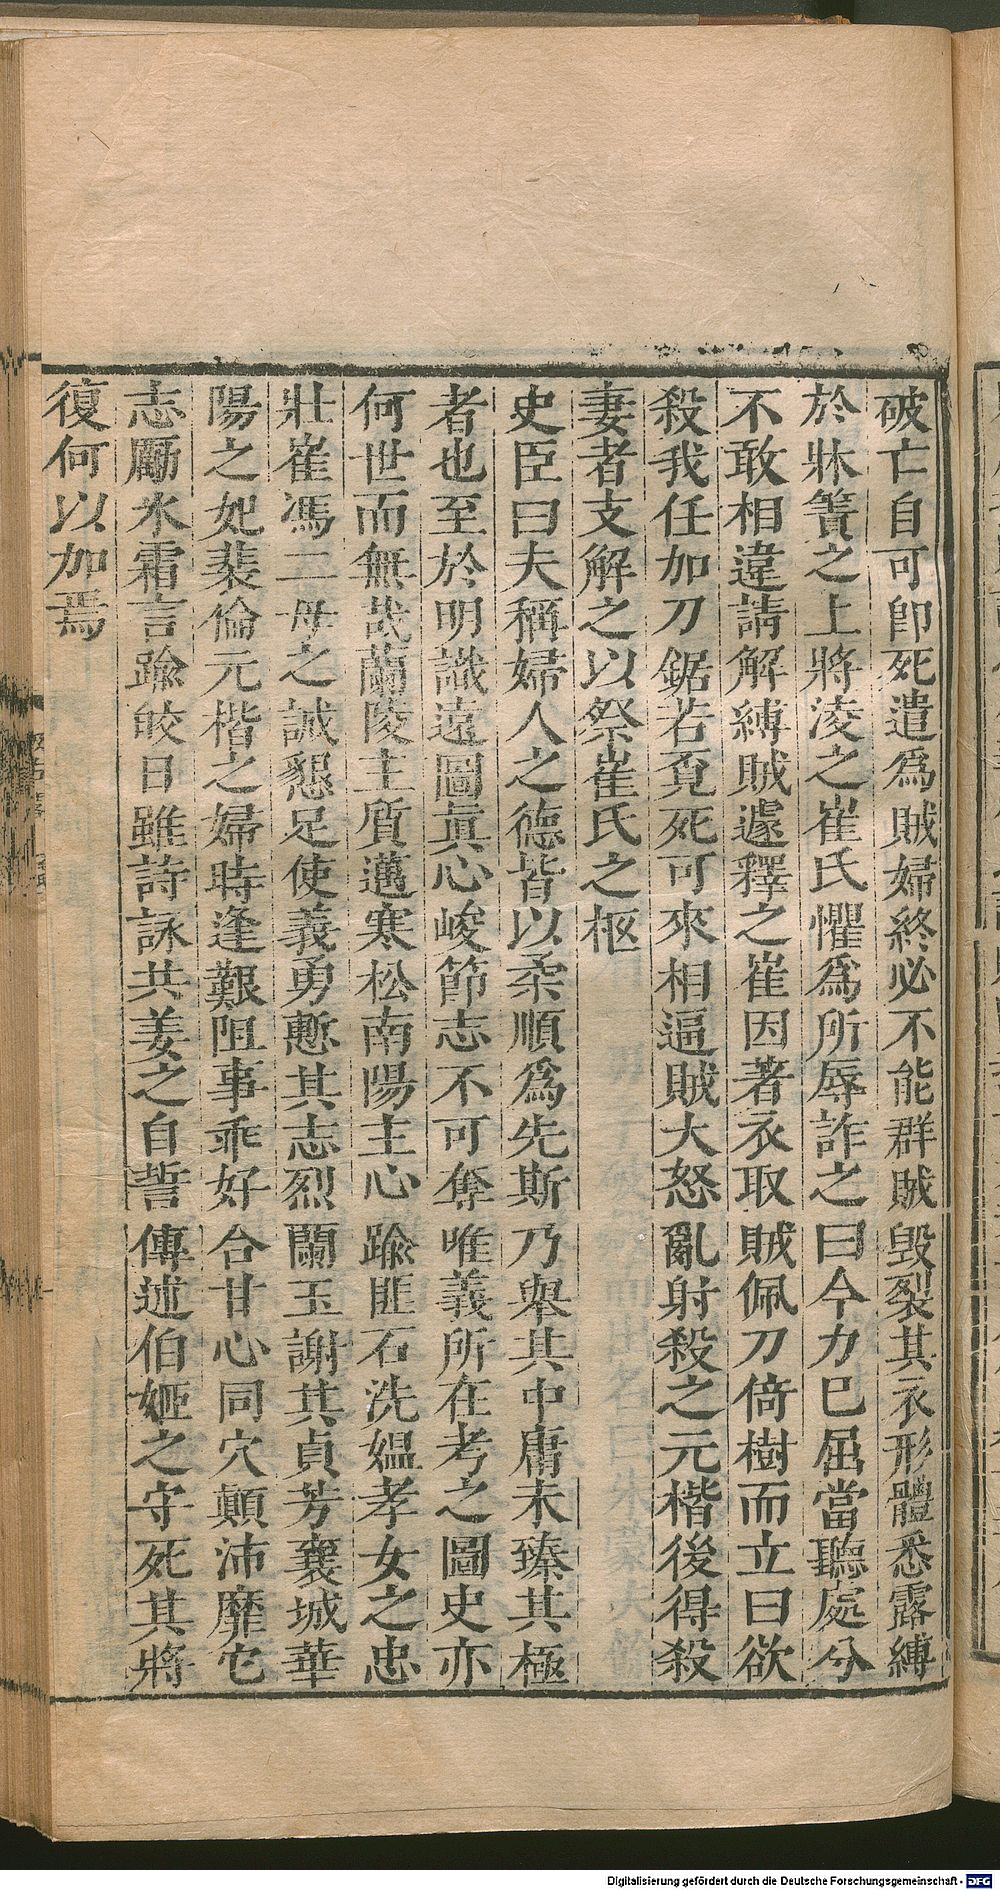 破亡自可即死遣爲賊婦終必不能群賊毁裂其衣形體悉露縛
於牀簀之上將凌之崔氏懼爲所辱詐之曰今力已屈當聽處分
不敢相違請解縛賊遽釋之崔因著衣取賊佩刀倚樹而立曰欲
殺我任加刀鋸若覔死可來相逼賊大怒亂射殺之元楷後得殺
妻者支解之以祭崔氏之柩
史臣曰夫稱婦人之德皆以柔順爲先斯乃舉其中庸未臻其極
者也至於明識遠圖眞心峻節志不可奪唯義所在考之圖史亦
何世而無哉蘭陵主質邁寒松南陽主心踰匪石洗媼孝女之忠
壯崔馮二母之誠懇足使義勇慙其志烈蘭玉謝其貞芳襄城華
陽之妃裴倫元楷之婦時逢艱阻事乖好合甘心同穴顛沛靡它
志勵氷霜言踰皎日雖詩詠共姜之自誓傳述伯姬之守死其將
復何以加焉
Digitalisierung gefördert durch die Deutsche Forschungsgemeinschaft - DFG